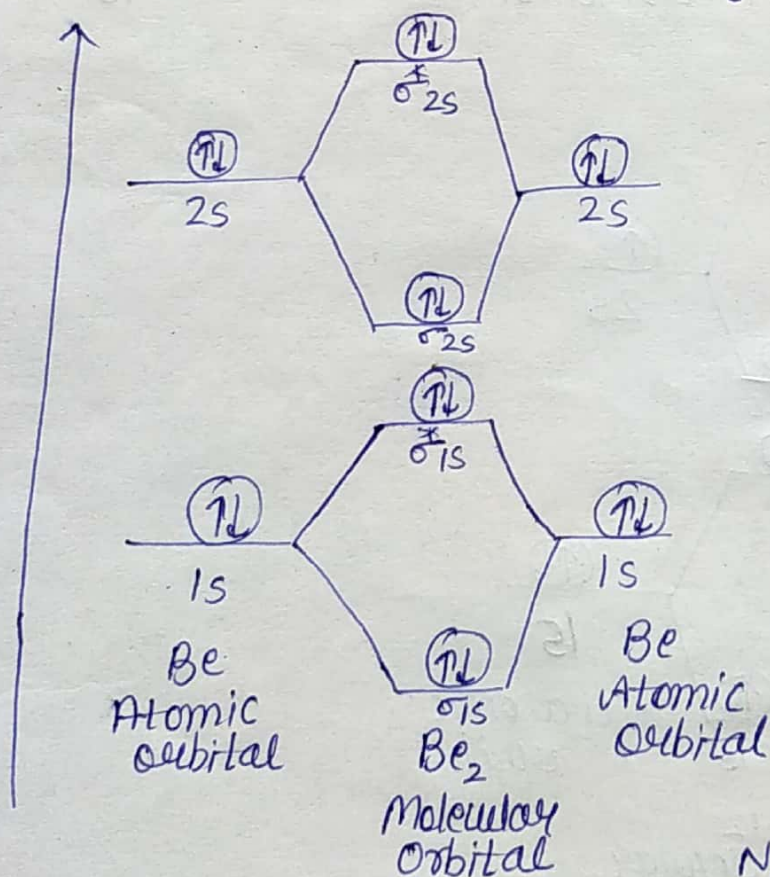 ↑↓
σ*2s
↑↓ ↑↓
2s 2s
↑↓
σ2s
↑↓
σ*1s
↑↓ ↑↓
1s 1s
↑↓
σ1s
Be
Atomic
Orbital
Be2
Molecular
Orbital
Be
Atomic
Orbital
N